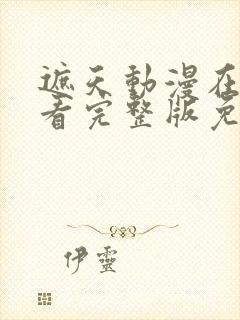 遮天動漫在
看完整版免
伊靈